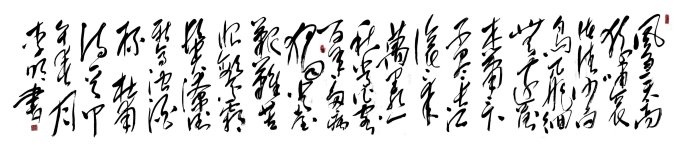 風急天高
猿嘯哀
渚清沙白
鳥飛迴
無邊落
木蕭蕭下
不盡長江
滾滾來
萬里悲
秋常作客
百年多病
獨登臺
艱難苦
恨繁霜
鬢潦倒
新停濁酒
杯 杜甫
詩
年 月
書